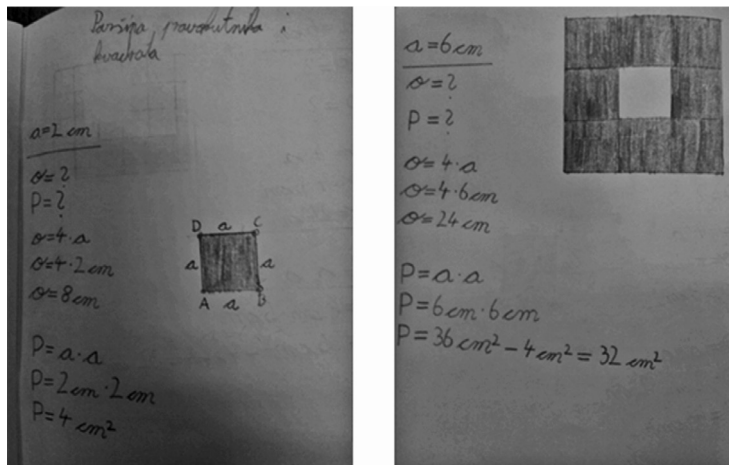 Površina pravokutnika i
kvadrata
a=2 cm
o=?
P=?
o=4·a
o=4·2 cm
o=8 cm
P=a·a
P=2 cm·2 cm
P=4 cm²
D a C
a a
A a B
a=6 cm
o=?
P=?
o=4·a
o=4·6 cm
o=24 cm
P=a·a
P=6 cm·6 cm
P=36 cm² - 4 cm² = 32 cm²